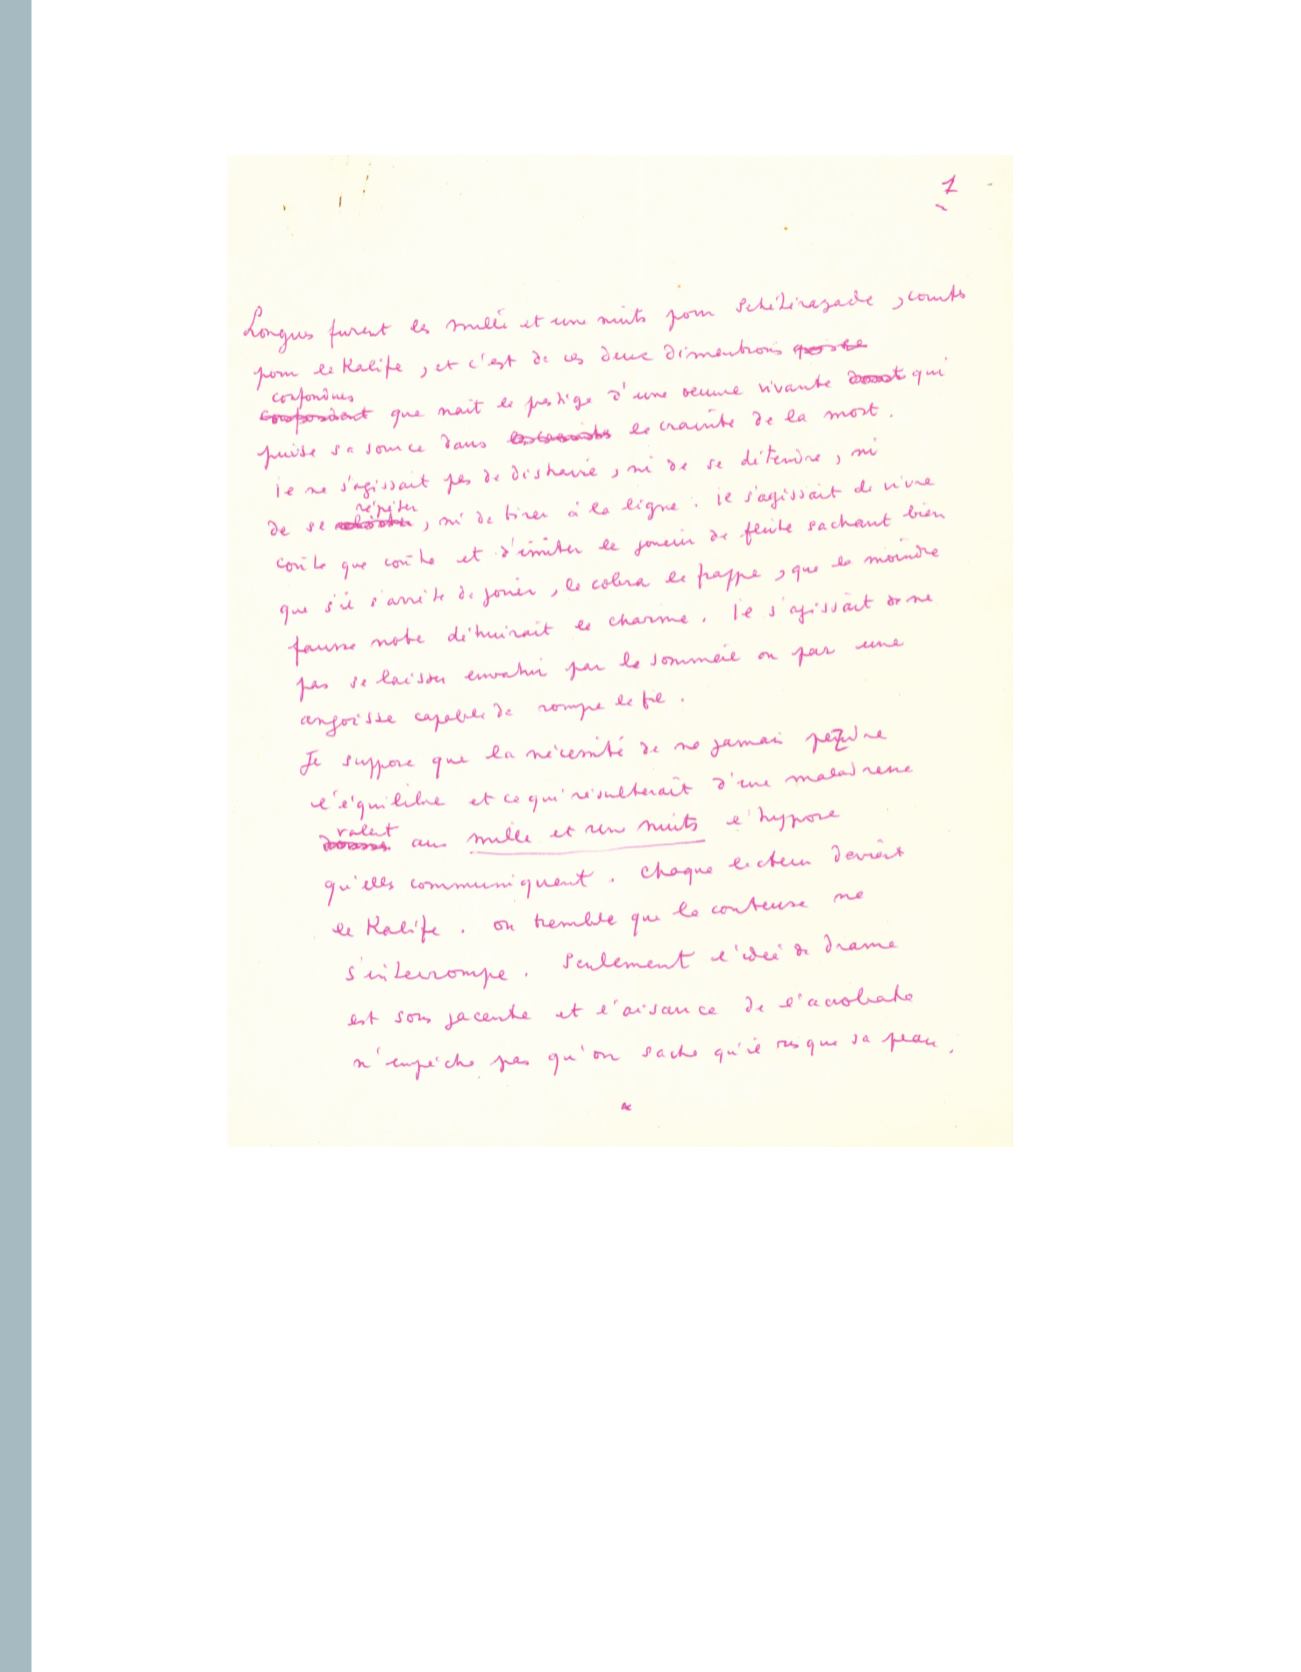 1
Longues furent les mille et une nuits pour Schéhérazade, courtes
pour le Kalife, et c'est de ces deux dimentions
confondues
que nait le prestige d'une oeuvre vivante qui
puise sa source dans la crainte de la mort.
Il ne s'agissait pas de distraire, ni de se détendre, ni
répéter
de se , ni de tirer à la ligne. Il s'agissait de vivre
coûte que coûte et d'imiter le joueur de flûte sachant bien
que s'il s'arrête de jouer, le cobra le frappe, que la moindre
fausse note détruirait le charme. Il s'agissait de ne
pas se laisser envahir par le sommeil ou par une
angoisse capable de rompre le fil.
Je suppose que la nécessité de ne jamais perdre
l'équilibre et ce qui résulterait d'une maladresse
valent
aux mille et une nuits l'hypnose
qu'elles communiquent. Chaque lecteur devient
le Kalife. On tremble que la conteuse ne
s'interrompe. Seulement l'idée de drame
est sous jacente et l'aisance de l'acrobate
n'empêche pas qu'on sache qu'il risque sa peau.